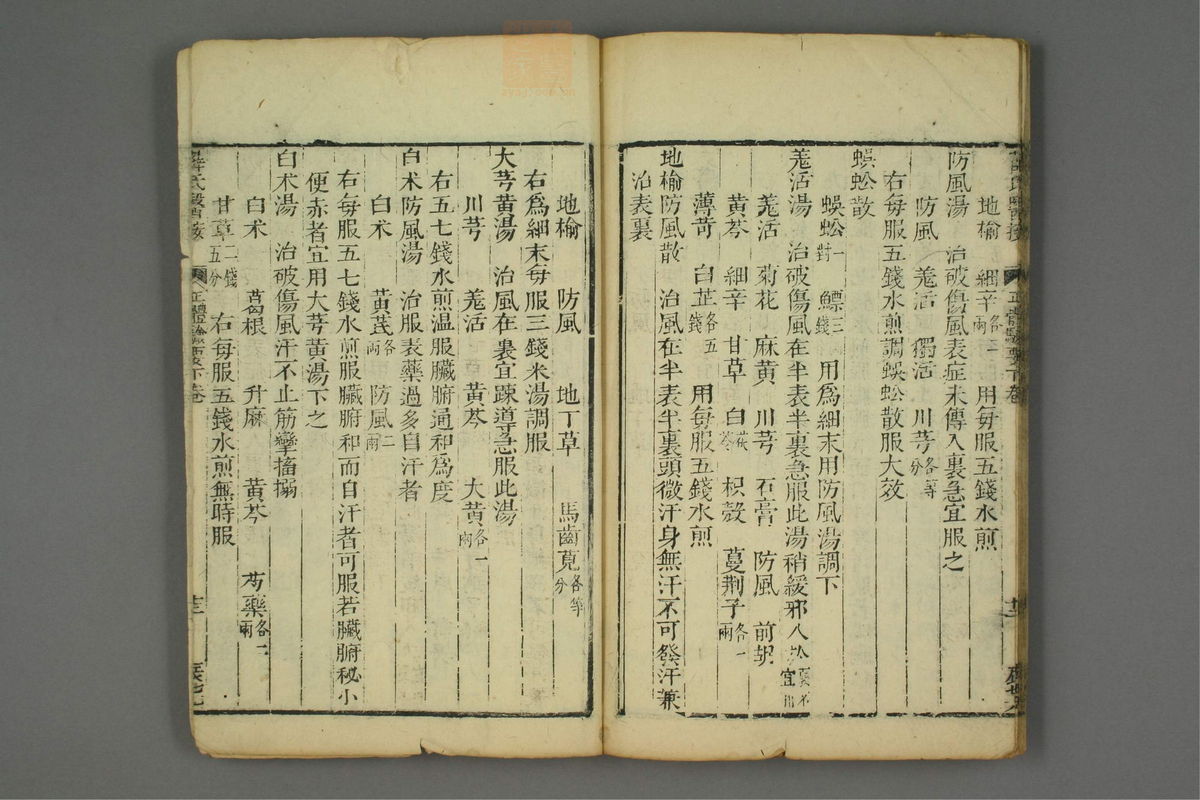 地榆　細辛各一兩　用每服五錢水煎
防風湯　治破傷風表症未傳入裏急宜服之
防風　羗活　獨活　川芎各等分
右每服五錢水煎調蜈蚣散服大效
蜈蚣散
蜈蚣一對　鰾三錢　用爲細末用防風湯調下
羗活湯　治破傷風在半表半裏急服此湯稍緩邪入於裏不宜用
羗活　菊花　麻黃　川芎　石膏　防風　前胡
黃芩　細辛　甘草　白茯苓　枳殼　蔓荆子各一兩
薄苛　白芷各五錢　用每服五錢水煎
地榆防風散　治風在半表半裏頭微汗身無汗不可發汗兼
治表裏
地榆　防風　地丁草　馬齒莧各等分
右爲細末每服三錢米湯調服
大芎黃湯　治風在裏宜踈導急服此湯
川芎　羗活　黃芩　大黃各一兩
右五七錢水煎温服臟腑通和爲度
白术防風湯　治服表藥過多自汗者
白术　黃芪各一兩　防風二兩
右每服五七錢水煎服臟腑和而自汗者可服若臟腑秘小
便赤者宜用大芎黃湯下之
白术湯　治破傷風汗不止筋攣搐搦
白术　葛根　升麻　黃芩　芍藥各二兩
甘草二錢五分　右每服五錢水煎無時服
正體類要下卷